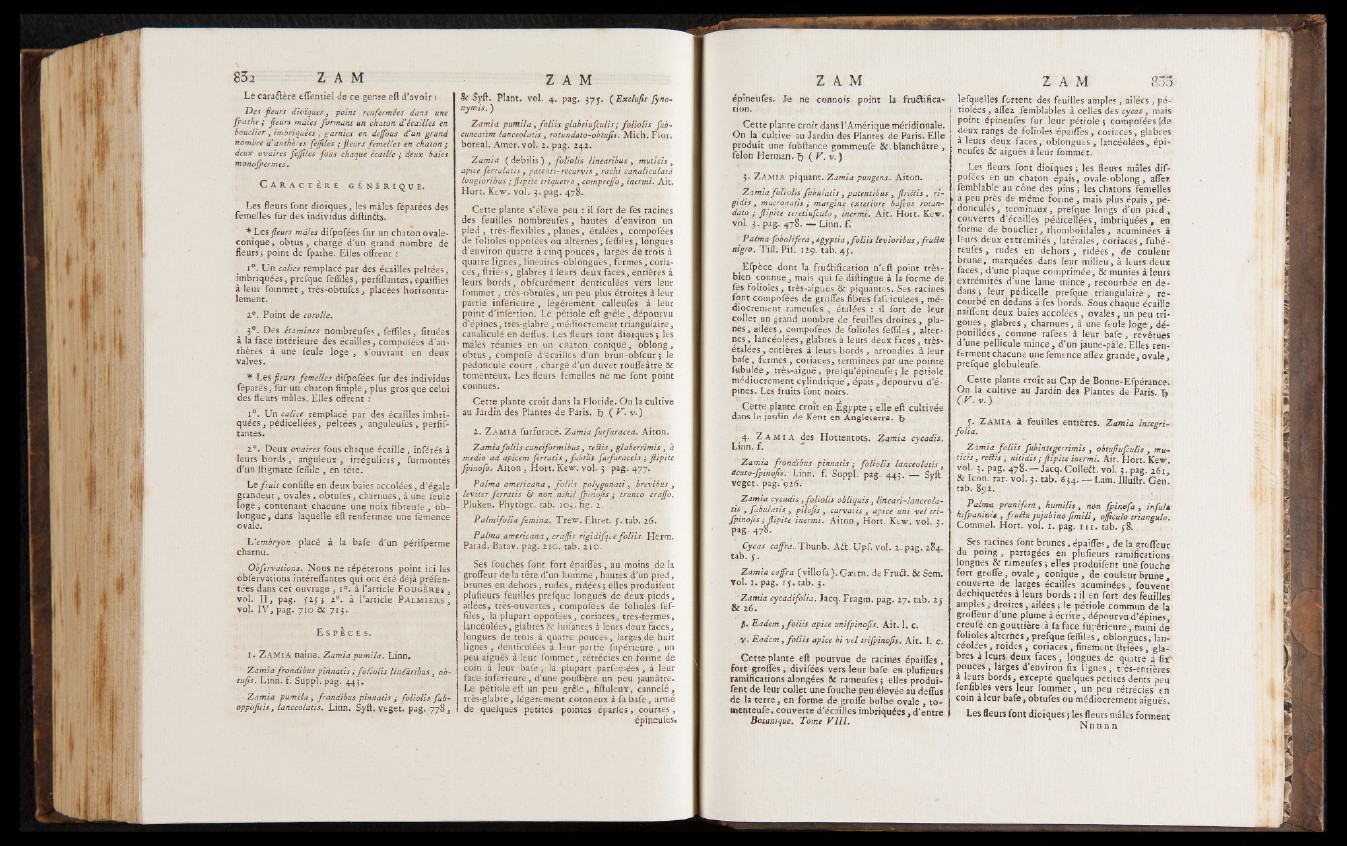 832 Z A M
Le caractère essentiel de ce genre est d'avoir :
Des fleurs dioïques, point renfermées dans une
spathe ; fleurs mâles formant un chaton d'écailles en
bouclier, imbriquées, garnies en dessous d'un grand
nombre d'anthères sessiles ; fleurs femelles en chaton ;
deux ovaires sessiles sous chaque écaille ; deux baies
monospermes.
CARACTÈRE GÉNÉRIQUE.
Les fleurs sont dioïques, les mâles séparées des
femelles sur des individus distincts.
* Les fleurs mâles disposées sur un chaton ovale-
conique, obtus, chargé d'un grand nombre de
fleurs ; point de spathe. Elles offrent :
1°. Un calice remplacé par des écailles peltées,
imbriquées, presque sessiles, persistantes, épaissies
à leur sommet, très-obtuses, placées horizonta-
lement.
2°. Point de corolle.
3°. Des étamines nombreuses, sessiles, situées
à la face intérieure des écailles, composées d'an-
thères à une seule loge, s'ouvrant en deux
valves.
* Les fleurs femelles disposées sur des individus
séparés, sur un chaton simple, plus gros que celui
des fleurs mâles. Elles offrent :
1°. Un calice remplacé par des écailles imbri-
quées, pédicellées, peltées, anguleuses, persis-
tantes.
2°. Deux ovaires sous chaque écaille, insérés à
leurs bords, anguleux, irréguliers, surmontés
d'un stigmate sessile, en tête.
Le fruit consiste en deux baies accolées, d'égale
grandeur, ovales, obtuses, charnues, à une seule
loge, contenant chacune une noix fibreuse, ob-
longue, dans laquelle est renfermée une semence
ovale.
L'embryon placé à la base d'un périsperme
charnu.
Observations. Nous ne répéterons point ici les
observations intéressantes qui ont été déjà présen-
tées dans cet ouvrage, 1°. à l'article FOUGÈRES,
vol. II, pag. 525 ; 2°. à l'article PALMIERS,
vol. IV, pag. 710 & 713.
ESPÈCES.
1. ZAMIA naine. Zamia pumila. Linn.
Zamia frondibus pinnatis ; foliolis linearibus, ob-
tusis. Linn. f. Suppl. pag. 443.
Zamia pumila, frondibus pinnatis ; foliolis sub-
oppositis, lanceolatis. Linn. Syst. veget. pag. 778,
Z A M
& Syst. Plant. vol. 4. pag. 375. (Exclusis syno-
nymis.)
Zamia pumila, foliis glabriusculis ; foliolis sub-
cuneatim lanceolatis, rotundato-obtusis. Mich. Flor.
boreal. Amer. vol. 2. pag. 242.
Zamia (debilis), foliolis linearibus, muticis,
apice serrulatis, patenti-recurvis, rachi canaliculatâ
longioribus ; stipite triquetro, compresso, inermi. Ait.
Hort. Kew. vol. 3. pag. 478.
Cette plante s'élève peu : il sort de ses racines
des feuilles nombreuses, hautes d'environ un
pied, très-flexibles, planes, étalées, composées
de folioles opposées ou alternes, sessiles, longues
d'environ quatre à cinq pouces, larges de trois à
quatre lignes, linéaires-oblongues, fermes, coria-
ces, striées, glabres à leurs deux faces, entières à
leurs bords, obscurément denticulées vers leur
sommet, très-obtuses, un peu plus étroites à leur
partie inférieure, légérement calleuses à leur
point d'insertion. Le pétiole est grêle, dépourvu
d'épines, très-glabre, médiocrement triangulaire,
canaliculé en dessus. Les fleurs sont dioïques ; les
mâles réunies en un chaton conique, oblong,
obtus, composé d'écailles d'un brun-obscur ; le
pédoncule court, chargé d'un duvet roussâtre &
tomenteux. Les fleurs femelles ne me sont point
connues.
Cette plante croît dans la Floride. On la cultive
au Jardin des Plantes de Paris. ♄ (V. v.)
2. ZAMIA furfuracé. Zamia furfuracea. Aiton.
Zamia foliis cuneiformibus, rectis, glaberrimis, à
medio ad apicem serratis, subtùs furfuraceis ; stipite
spinoso. Aiton, Hort. Kew. vol. 3. pag. 477.
Palma americana, foliis polygonati, brevibus,
leviter serratis & non nihil spinosis ; trunco crasso.
Pluken. Phytogr. tab. 103. fig. 2.
Palmifolia femina. Trew. Ehret. 5. tab. 26.
Palma americana, crassis rigidisque foliis. Herm.
Parad. Batav. pag. 210. tab. 210.
Ses souches sont fort épaisses, au moins de la
grosseur de la tête d'un homme, hautes d'un pied,
brunes en dehors, rudes, ridées ; elles produisent
plusieurs feuilles presque longues de deux pieds,
ailées, très-ouvertes, composées de folioles ses-
siles, la plupart opposées, coriaces, très-fermes,
lancéolées, glabres & luisantes à leurs deux faces,
longues de trois à quatre pouces, larges de huit
lignes, denticulées à leur partie supérieure, un
peu aiguës à leur sommet, rétrécies en forme de
coin à leur base, la plupart parsemées, à leur
face inférieure, d'une poussière un peu jaunâtre.
Le pétiole est un peu grêle, fistuleux, cannelé,
très-glabre, légérement cotoneux à sa base, armé
de quelques petites pointes éparses, courtes,
épineuses.
Z A M
épineuses. Je ne connois point la fructifica-
tion.
Cette plante croît dans l'Amérique méridionale.
On la cultive au Jardin des Plantes de Paris. Elle
produit une substance gommeuse & blanchâtre,
selon Herman. ♄ (V. v.)
3. ZAMIA piquant. Zamia pungens. Aiton.
Zamia foliolis subulatis, patentibus, strictis, ri-
gidis, mucronatis ; margine exteriore baseos rotun-
dato ; stipite teretiusculo, inermi. Ait. Hort. Kew.
vol. 3. pag. 478. — Linn. f.
Palma sobolifera, egyptia, foliis levioribus, fructu
nigro. Till. Pis. 129. tab. 45.
Espèce dont la fructification n'est point très-
bien connue, mais qui se distingue à la forme de
ses folioles, très-aiguës & piquantes. Ses racines
sont composées de grosses fibres fasciculées, mé-
diocrement rameuses, étalées : il sort de leur
collet un grand nombre de feuilles droites, pla-
nes, ailées, composées de folioles sessiles, alter-
nes, lancéolées, glabres à leurs deux faces, très-
étalées, entières à leurs bords, arrondies à leur
base, fermes, coriaces, terminées par une pointe
subulée, très-aiguë, presqu'épineuse ; le pétiole
médiocrement cylindrique, épais, dépourvu d'é-
pines. Les fruits sont noirs.
Cette plante croît en Égypte ; elle est cultivée
dans le jardin de Kent en Angleterre. ♄
4. ZAMIA des Hottentots. Zamia cycadis.
Linn. f.
Zamia frondibus pinnatis ; foliolis lanceolatis,
acuto-spinosis. Linn. f. Suppl. pag. 443. — Syst.
veget. pag. 926.
Zamia cycadis, foliolis obliquis, lineari-lanceola-
tis, subulatis, pilosis, curvatis, apice uni vel tri-
spinosis ; stipite inermi. Aiton, Hort. Kew. vol. 3.
pag. 478.
Cycas caffra. Thunb. Act. Ups. vol. 2. pag. 284.
tab. 5.
Zamia caffra (villosa). Gærtn. de Fruct. & Sem.
vol. 1. pag. 15. tab. 3.
Zamia cycadifolia. Jacq. Fragm. pag. 27. tab. 25
& 26.
β. Eadem, foliis apice unispinosis. Ait. l. c.
γ. Eadem, foliis apice bi vel trispinosis. Ait. l. c.
Cette plante est pourvue de racines épaisses,
fort grosses, divisées vers leur base en plusieurs
ramifications alongées & rameuses ; elles produi-
sent de leur collet une souche peu élevée au dessus
de la terre, en forme de grosse bulbe ovale, to-
menteuse, couverte d'écailles imbriquées, d'entre
Botanique. Tome VIII.
Z A M 833
lesquelles sortent des feuilles amples, ailées, pé-
tiolées, assez semblables à celles des cycas, mais
point épineuses sur leur pétiole ; composées de
deux rangs de folioles épaisses, coriaces, glabres
à leurs deux faces, oblongues, lancéolées, épi-
neuses & aiguës à leur sommet.
Les fleurs sont dioïques ; les fleurs mâles dis-
posées en un chaton épais, ovale-oblong, assez
semblable au cône des pins ; les chatons femelles
à peu près de même forme, mais plus épais, pé-
donculés, terminaux, presque longs d'un pied,
couverts d'écailles pédicellées, imbriquées, en
forme de bouclier, rhomboïdales, acuminées à
leurs deux extrémités, latérales, coriaces, subé-
reuses, rudes en dehors, ridées, de couleur
brune, marquées dans leur milieu, à leurs deux
faces, d'une plaque comprimée, & munies à leurs
extrémités d'une lame mince, recourbée en de-
dans ; leur pédicelle presque triangulaire, re-
courbé en dedans à ses bords. Sous chaque écaille
naissent deux baies accolées, ovales, un peu tri-
gones, glabres, charnues, à une seule loge, dé-
pouillées, comme rases à leur base, revêtues
d'une pellicule mince, d'un jaune-pâle. Elles ren-
ferment chacune une semence assez grande, ovale,
presque globuleuse.
Cette plante croît au Cap de Bonne-Espérance.
On la cultive au Jardin des Plantes de Paris. ♄
(V. v.)
5. ZAMIA à feuilles entières. Zamia integri-
folia.
Zamia foliis subintegerrimis, obtusiusculis, mu-
ticis, rectis, nitidis ; stipite inermi. Ait. Hort. Kew.
vol. 3. pag. 478. — Jacq. Collect. vol. 3. pag. 261,
& Icon. rar. vol. 3. tab. 634. — Lam. Illustr. Gen.
tab. 892.
Palma prunifera, humilis, non spinosa, insulæ
hispaniolæ, fructu jujubino simili, officulo triangulo.
Commel. Hort. vol. 1. pag. 111. tab. 58.
Ses racines sont brunes, épaisses, de la grosseur
du poing, partagées en plusieurs ramifications
longues & rameuses ; elles produisent une souche
fort grosse, ovale, conique, de couleur brune,
couverte de larges écailles acuminées, souvent
déchiquetées à leurs bords : il en sort des feuilles
amples, droites, ailées ; le pétiole commun de la
grosseur d'une plume à écrire, dépourvu d'épines,
creusé en gouttière à sa face supérieure, muni de
folioles alternes, presque sessiles, oblongues, lan-
céolées, roides, coriaces, finement striées, gla-
bres à leurs deux faces, longues de quatre à six
pouces, larges d'environ six lignes, très-entières
à leurs bords, excepté quelques petites dents peu
sensibles vers leur sommet, un peu rétrécies en
coin à leur base, obtuses ou médiocrement aiguës.
Les fleurs sont dioïques ; les fleurs mâles forment
N n n n n